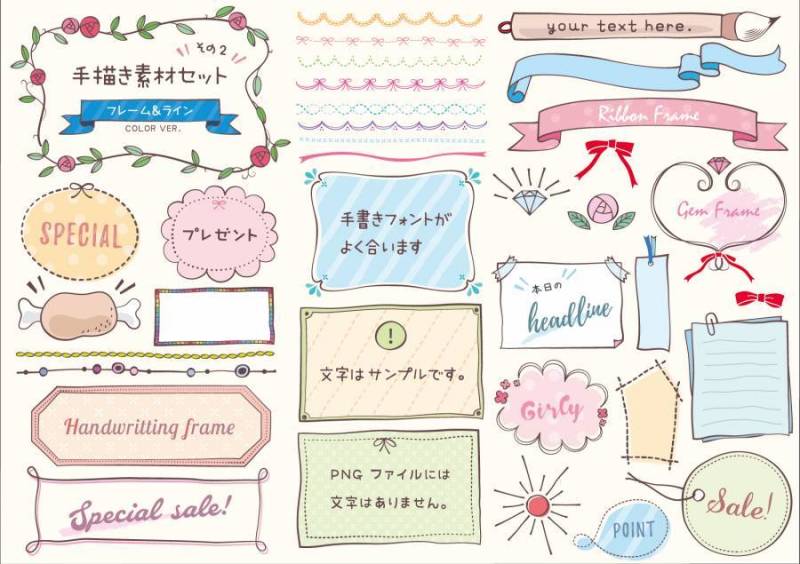 その2
手描き素材セット
フレーム&ライン
COLOR VER.
your text here.
Ribbon Frame
SPECIAL
プレゼント
手書きフォントが
よく合います
Gem Frame
本日の
headline
!
文字はサンプルです。
Girly
Handwritting frame
PNG ファイルには
文字はありません。
Special sale!
POINT
Sale!